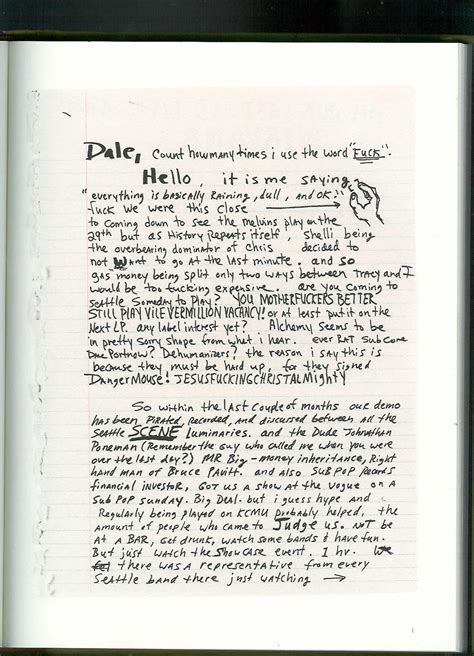 Dale, Count how many times i use the word "Fuck".
Hello, it is me saying
"everything is basically Raining, dull, and OK."
Fuck we were this close
to coming down to see the melvins play on the
29th but as History Repeats itself, Shelli being
the overbearing dominator of Chris decided to
not Want to go at the last minute. and so
gas money being split only two ways between Tracy and I
would be too fucking expensive. are you coming to
Seattle Someday to Play? YOU MOTHERFUCKERS BETTER
STILL PLAY VILE VERMILLION VACANCY! or at least put it on the
Next LP. any label interest yet? Alchemy seems to be
in pretty sorry shape from what i hear. ever RAT Sub Core
Dave Portnow? Dehumanizers? the reason i say this is
because they must be hard up, for they signed
DangerMouse! JESUSFUCKINGCHRISTALMighty
So within the last couple of months our demo
has been PiRated, Recorded, and discussed between all the
Seattle SCENE Luminaries. and the Dude Johnathan
Poneman (Remember the guy who called me when you were
over the last day?) MR Big-money inheritance, Right
hand man of Bruce Pavitt. and also SUB POP Records
financial INVESTOR, GOT US a SHow at the Vogue on a
SUB POP SUNDAY. Big DEAL. but i guess hype and
Regularly being played on KCMU probably helped. the
amount of people who came to Judge us. NOT BE
AT a BAR, GEt drunk, watch some bands & have fun.
But just watch the SHowCASE event. 1 hr. We
there was a representative from every
Seattle band there just watching →
1